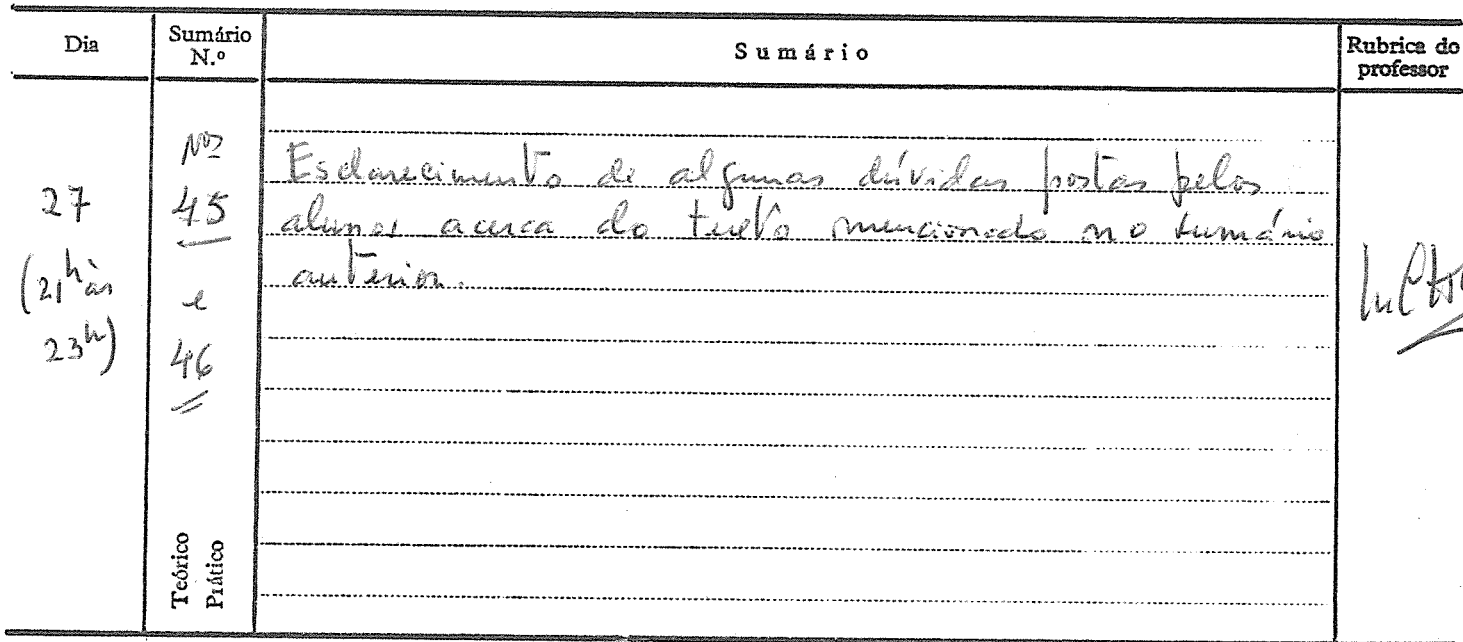 Dia
Sumário N.º
Sumário
Rubrica do professor
27
(21h às
23h)
Nos
45
e
46
Teórico
Prático
Esclarecimento de algumas dúvidas postas pelos
alunos acerca do texto mencionado no sumário
anterior.